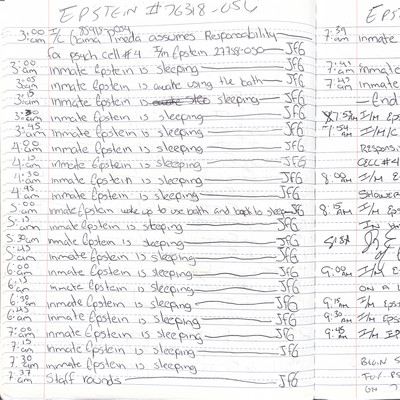 EPSTEIN # 76318-054
3:00 am I/C Gama Pineda assumes Responsability
for psych cell #4 I/m Epstein JFG
3:00 am inmate Epstein is sleeping JFG
am inmate Epstein is awake using the bath JFG
3:15 am inmate Epstein is sleeping JFG
3:30 am inmate Epstein is sleeping JFG
3:45 am inmate Epstein is sleeping JFG
4:00 am inmate Epstein is sleeping JFG
4:15 am inmate Epstein is sleeping JFG
4:30 am inmate Epstein is sleeping JFG
4:45 am inmate Epstein is sleeping JFG
5:00 am inmate Epstein woke up to use bath and back to sleep JFG
5:15 am inmate Epstein is sleeping JFG
5:30 am inmate Epstein is sleeping JFG
5:45 am inmate Epstein is sleeping JFG
6:00 am inmate Epstein is sleeping JFG
6:15 am inmate Epstein is sleeping JFG
6:30 am inmate Epstein is sleeping JFG
6:45 am inmate Epstein is sleeping JFG
7:00 am inmate Epstein is sleeping JFG
7:15 am inmate Epstein is sleeping JFG
7:30 am inmate Epstein is sleeping
7:37 am Staff rounds JFG
EPS
7:39 am inmate
7:41 am inmate
7:45 am inmate
End
I/M EPS
7:54 am I/M/C
RESPONSI
CELL #4
8:00 AM I/M E
SHOWER
8:15 AM I/M EP
IN
9:00 AM I/M E
ON A
9:15 AM I/M E
9:30 AM I/M E
9:45 AM I/M EP
BEGIN S
FOR PS
ON 7